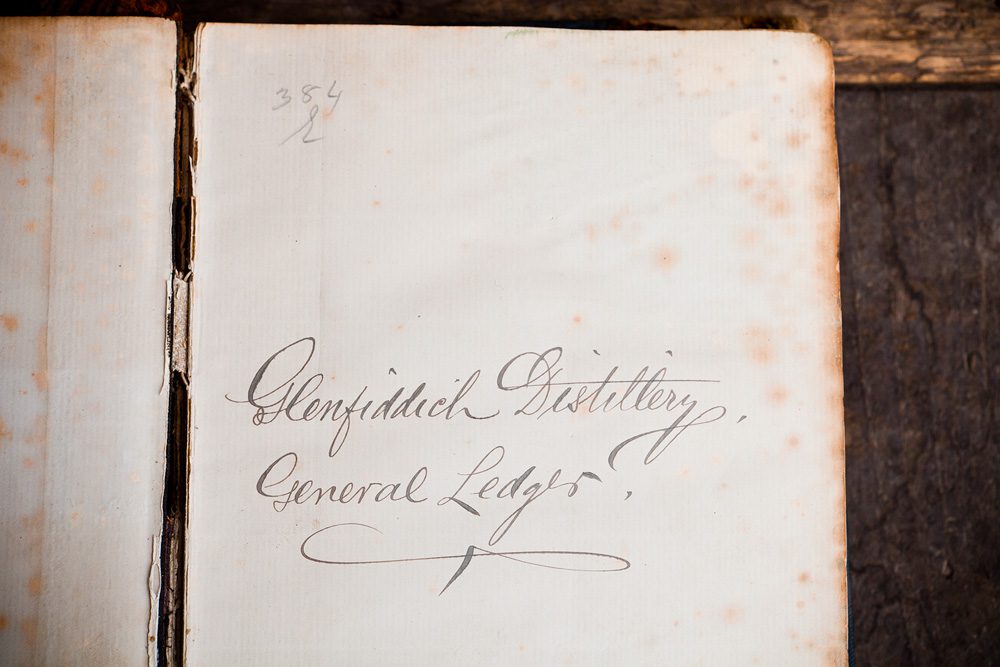 384
Glenfiddich Distillery.
General Ledger.